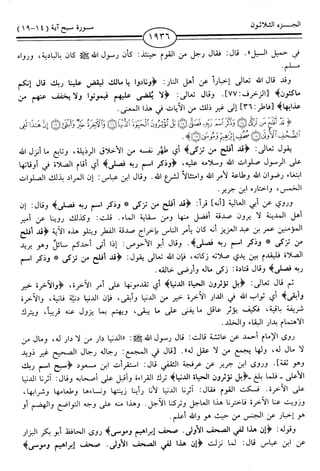 الجـــزء الثلاثـــون
١٩٣٦
سورة سبح آية (١٤-١٩)
في حميل السيل». قال: فقال رجل من القوم حينئذ: كأن رسول الله ﷺ كان بالبادية، ورواه
مسلم.
وقد قال الله تعالى إخباراً عن أهل النار: ﴿ونادوا يا مالك ليقض علينا ربك قال إنكم
ماكثون﴾ [الزخرف: ٧٧]. وقال تعالى: ﴿لا يُقضى عليهم فيموتوا ولا يخفف عنهم من
عذابها﴾ [فاطر: ٣٦] إلى غير ذلك من الآيات في هذا المعنى.
﴿قَدْ أَفْلَحَ مَن تَزَكَّىٰ وَذَكَرَ اسْمَ رَبِّهِ فَصَلَّىٰ بَلْ تُؤْثِرُونَ الْحَيَاةَ الدُّنْيَا وَالْآخِرَةُ خَيْرٌ وَأَبْقَىٰ إِنَّ هَٰذَا لَفِي
الصُّحُفِ الْأُولَىٰ صُحُفِ إِبْرَاهِيمَ وَمُوسَىٰ﴾
يقول تعالى: ﴿قد أفلح من تزكى﴾ أي طهر نفسه من الأخلاق الرذيلة، وتابع ما أنزل الله
على الرسول صلوات الله وسلامه عليه، ﴿وذكر اسم ربه فصلى﴾ أي أقام الصلاة في أوقاتها
ابتغاء رضوان الله وطاعة لأمر الله وامتثالاً لشرع الله. وقال ابن عباس: إن المراد بذلك الصلوات
الخمس، واختاره ابن جرير.
وروي عن أبي العالية [أنه] قرأ: ﴿قد أفلح من تزكى * وذكر اسم ربه فصلى﴾ وقال: إن
أهل المدينة لا يرون صدقة أفضل منها ومن سقاية الماء. قلت: وكذلك روينا عن أمير
المؤمنين عمر بن عبد العزيز أنه كان يأمر الناس بإخراج صدقة الفطر ويتلو هذه الآية ﴿قد أفلح
من تزكى * وذكر اسم ربه فصلى﴾. وقال أبو الأحوص: إذا أتى أحدكم سائلٌ وهو يريد
الصلاة فليقدم بين يدي صلاته زكاته، فإن الله تعالى يقول: ﴿قد أفلح من تزكى * وذكر اسم
ربه فصلى﴾ وقال قتادة: زكى ماله وأرضى خالقه.
ثم قال تعالى: ﴿بل تؤثرون الحياة الدنيا﴾ أي تقدمونها على أمر الآخرة، ﴿والآخرة خير
وأبقى﴾ أي ثواب الله في الدار الآخرة خير من الدنيا وأبقى، فإن الدنيا دنيَّة فانية، والآخرة
شريفة باقية، فكيف يؤثر عاقل ما يفنى على ما يبقى، ويهتم بما يزول عنه قريباً، ويترك
الاهتمام بدار البقاء والخلد.
روى الإمام أحمد عن عائشة قالت: قال رسول الله ﷺ: «الدنيا دار من لا دار له، ومال من
لا مال له، ولها يجمع من لا عقل له». [قال في المجمع: رجاله رجال الصحيح غير ذويد
وهو ثقة]. وروى ابن جرير عن عرفجة الثقفي قال: استقرأت ابن مسعود ﴿سبح اسم ربك
الأعلى﴾ فلما بلغ ﴿بل تؤثرون الحياة الدنيا﴾ ترك القراءة وأقبل على أصحابه وقال: آثرنا الدنيا
على الآخرة. فسكت القوم فقال: آثرنا الدنيا لأنا رأينا زينتها ونساءها وطعامها وشرابها،
وزويت عنا الآخرة فاخترنا هذا العاجل وتركنا الآجل. وهذا منه على وجه التواضع والهضم أو
هو إخبار عن الجنس من حيث هو والله أعلم.
وقوله: ﴿إن هذا لفي الصحف الأولى. صحف إبراهيم وموسى﴾ روى الحافظ أبو بكر البزار
عن ابن عباس قال: لما نزلت ﴿إن هذا لفي الصحف الأولى. صحف إبراهيم وموسى﴾